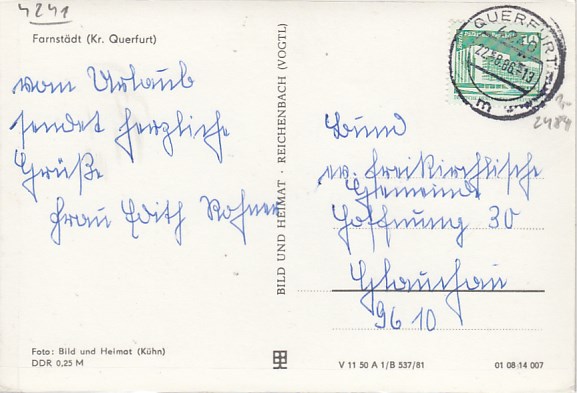 4241
Farnstädt (Kr. Querfurt)
vom Urlaub
sendet herzliche
Grüße
Frau Edith Rohner
BILD UND HEIMAT · REICHENBACH (VOGTL)
QUERFURT
22.-8.86.-13
m
10
1,-
2484
Bund
ev. Freikirchlische
Gemeinde
Hoffnung 30
Glauchau
9610
Foto: Bild und Heimat (Kühn)
DDR 0,25 M
V 11 50 A 1/B 537/81
01 08 14 007